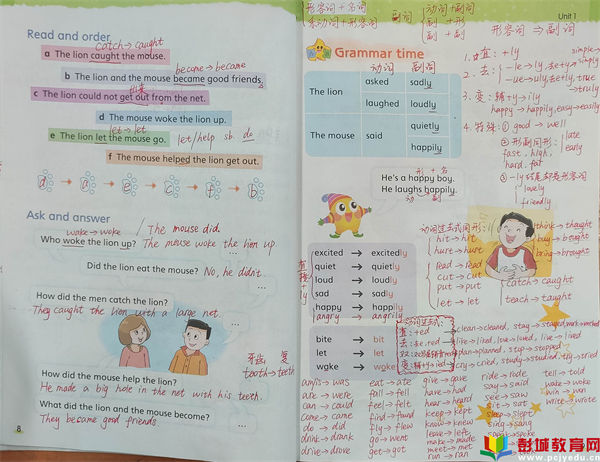 Read and order
catch→caught
a The lion caught the mouse.
become→became
b The lion and the mouse became good friends.
c The lion could not get out from the net.
d The mouse woke the lion up.
let→let
e The lion let the mouse go.
let/help sb. do
f The mouse helped the lion get out.
d → a → e → c → f → b
Ask and answer
wake→woke
The mouse did.
Who woke the lion up? The mouse woke the lion up.
Did the lion eat the mouse? No, he didn't.
How did the men catch the lion?
They caught the lion with a large net.
牙齿 复
tooth→teeth
How did the mouse help the lion?
He made a big hole in the net with his teeth.
What did the lion and the mouse become?
They became good friends.
8
形容词+名词
系动词+形容词
副词
动词+副词
副+形
副+副
Unit 1
形容词⇒副词
Grammar time
动词 副词
The lion
asked sadly
laughed loudly
The mouse said
quietly
happily
1. 直: +ly
2. 去:
3. 变: 辅+y→ily
happy→happily, easy→easily
4. 特殊: ① good→well
② 形副同形: late
fast, high, early
hard, far
③ -ly结尾却是形容词
lovely
friendly
形+名
He's a happy boy.
He laughs happily.
动 副
excited → excitedly
quiet → quietly
loud → loudly
sad → sadly
happy → happily
angry → angrily
直接+ly
bite → bit
let → let
wake → woke
动词过去式同形:
hit→hit
hurt→hurt
read→read
cut→cut
put→put
let→let
think→thought
buy→bought
bring→brought
catch→caught
teach→taught
动词过去式:
直: +ed → clean-cleaned, stay→stayed, work→worked
like→liked, live→lived, love→loved
plan→planned, stop→stopped
变: 辅+y→ied → cry→cried, study→studied, try→tried
am/is→was
are→were
can→could
come→came
do→did
drink→drank
drive→drove
eat→ate
fall→fell
feel→felt
find→found
fly→flew
go→went
get→got
give→gave
have→had
hear→heard
keep→kept
know→knew
leave→left
make→made
meet→met
run→ran
ride→rode
say→said
see→saw
sit→sat
sleep→slept
sing→sang
speak→spoke
tell→told
wake→woke
win→won
write→wrote
彭城教育网
www.pcjyedu.cn